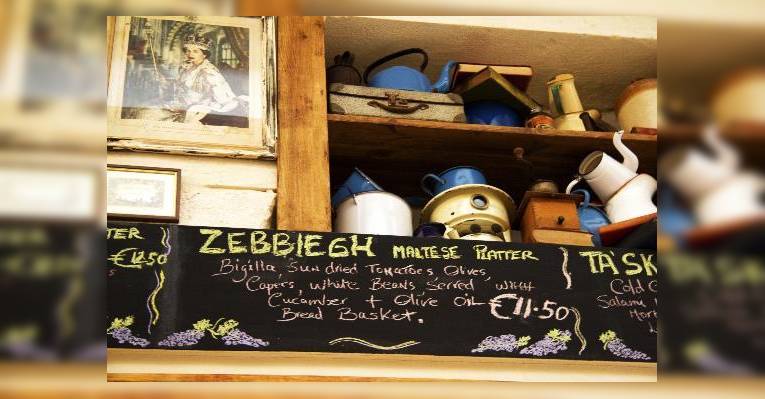 TER
€12.50
ZEBBIEGH MALTESE PLATTER
Bigilla, Sun dried Tomatoes, Olives,
Capers, white Beans Served with
Cucumber + Olive Oil €11.50
Bread Basket.
TA'SK
Cold
Salamu